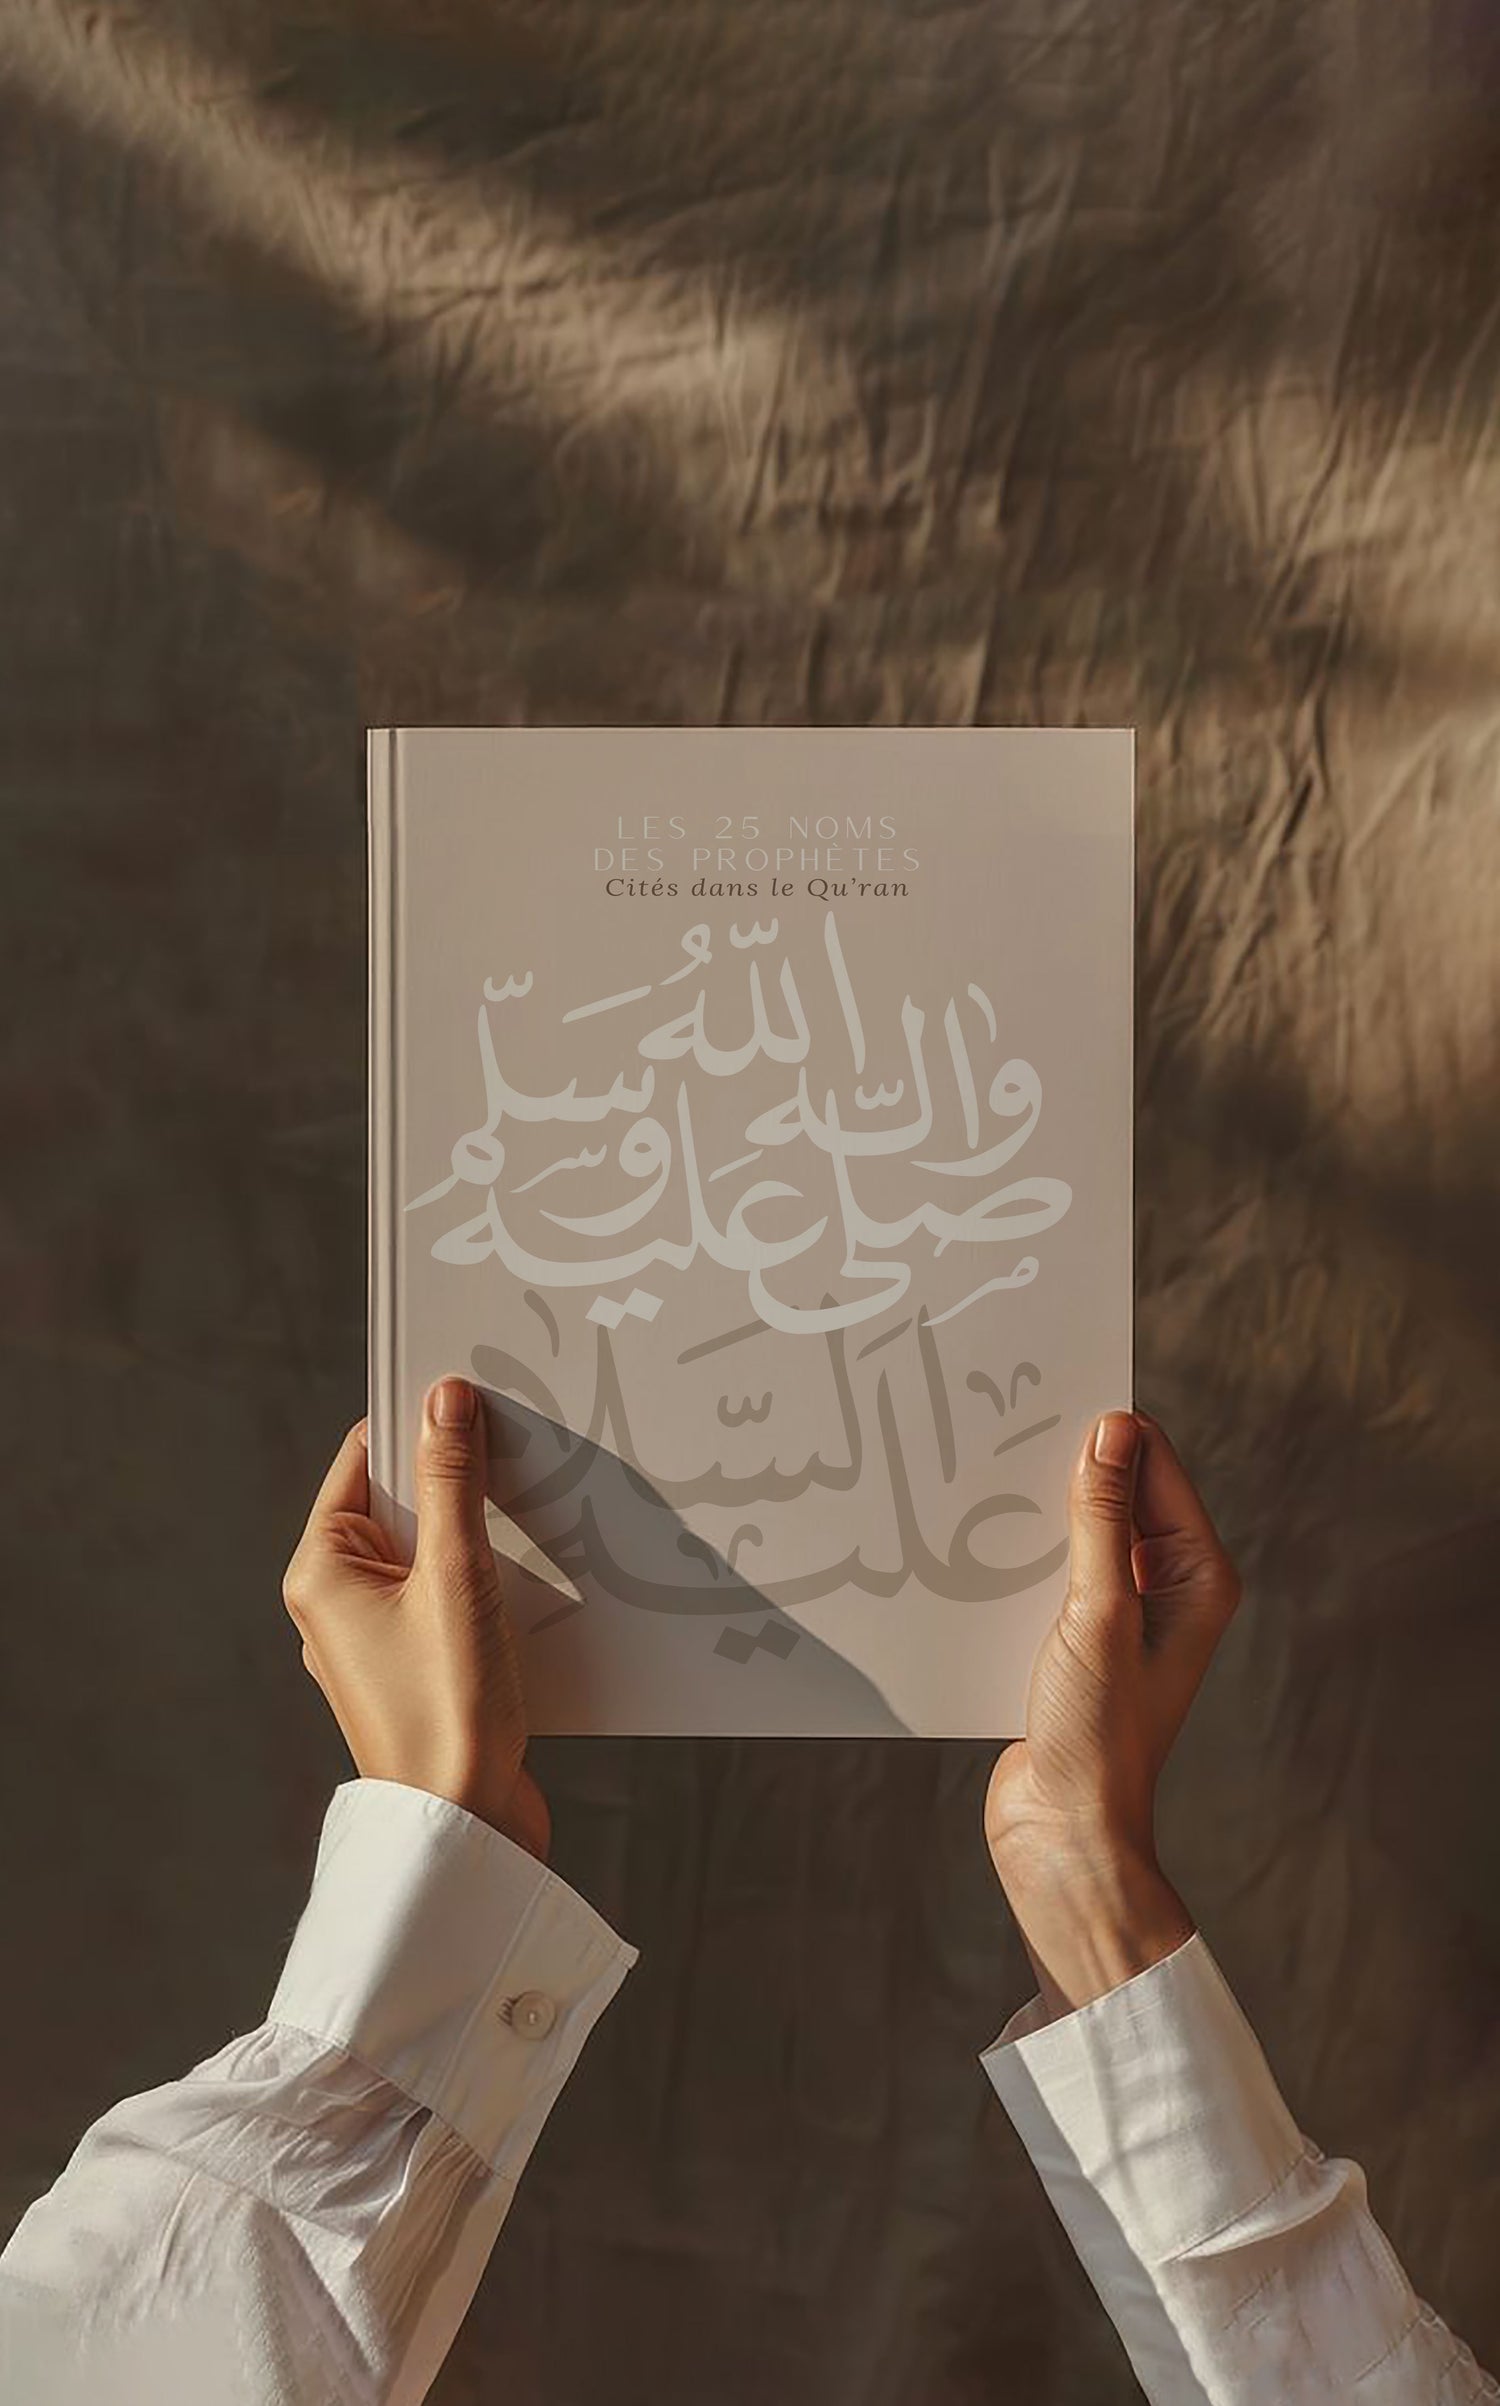 LES 25 NOMS
DES PROPHÈTES
Cités dans le Qu'ran
صلى الله عليه واله وسلم
عليه السلام